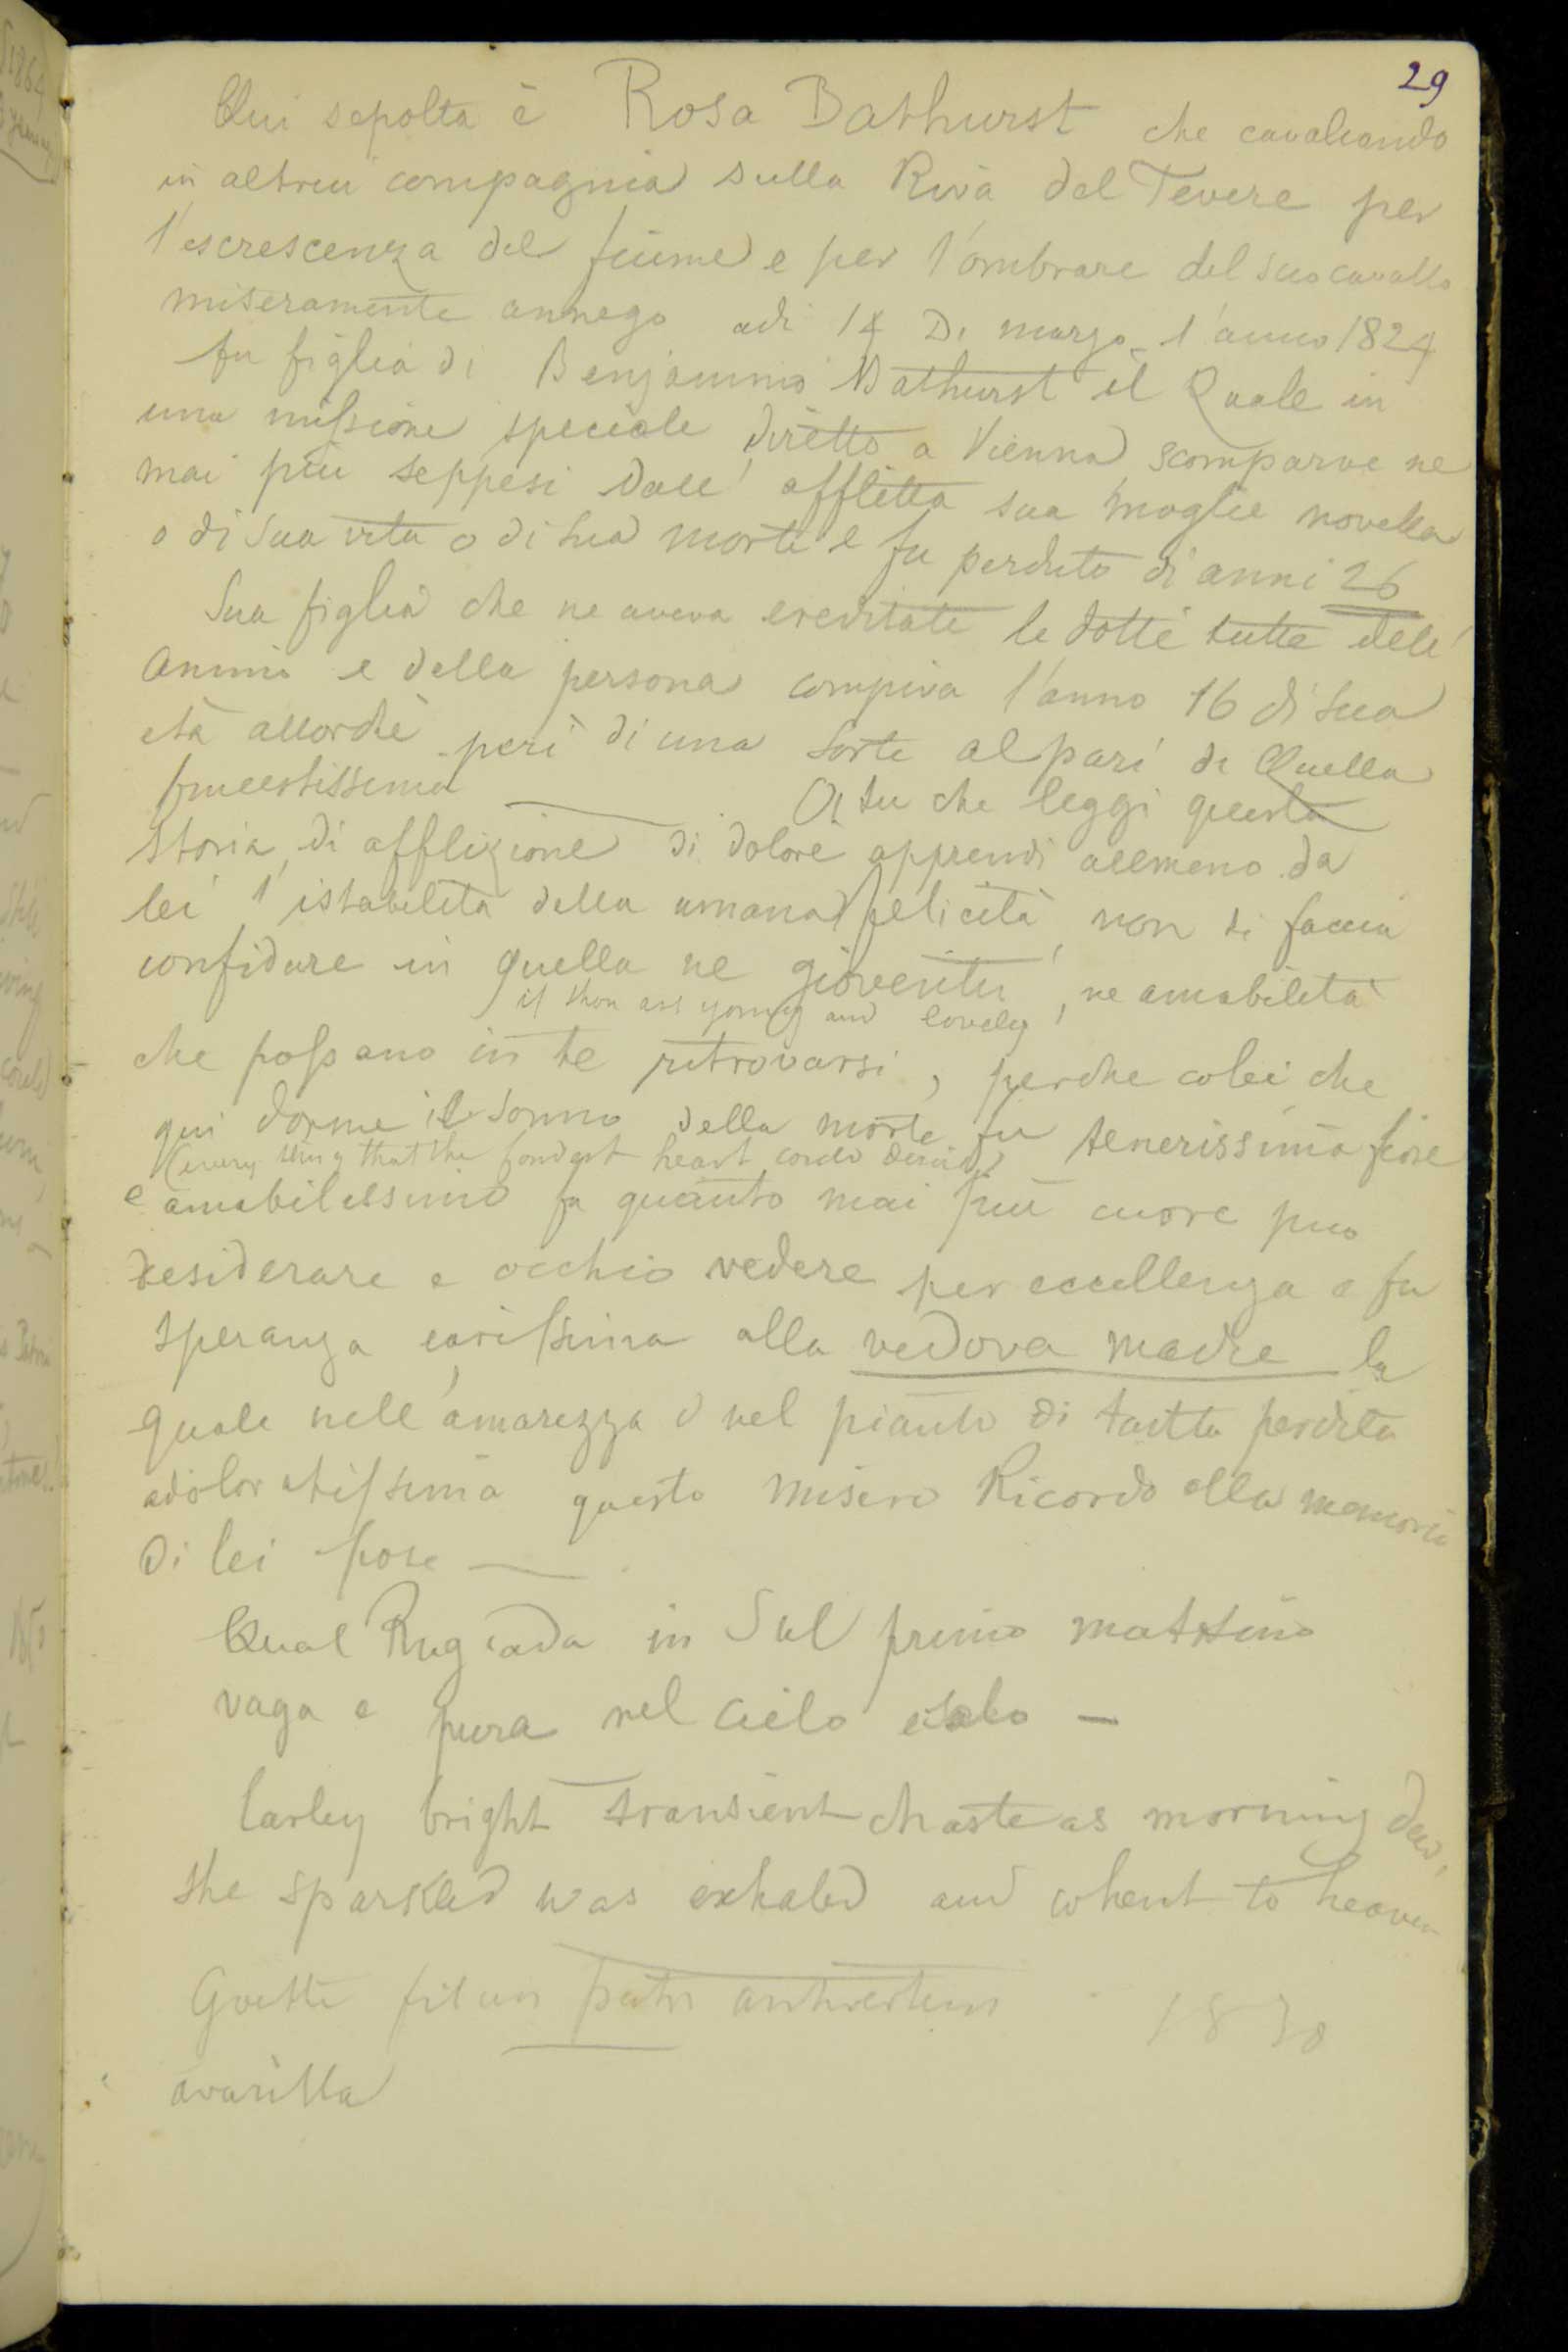 29
Qui sepolta è Rosa Bathurst che cavalcando
in altrui compagnia sulla Riva del Tevere per
l'escrescenza del fiume e per l'ombrare del suo cavallo
miseramente annego adi 14 Di marzo l'anno 1824
fu figlia di Benjamino Bathurst il Quale in
una missione speciale diretto a Vienna scomparve ne
mai più seppesi Dall' afflitta sua moglie novella
o di sua vita o di sua morte e fu perduto di anni 26
Sua figlia che ne aveva ereditate le dotti tutte dell'
animo e della persona compiva l'anno 16 di sua
età allorchè perì di una sorte al pari di Quella
funestissima O tu che leggi questa
storia di afflizione di dolore apprendi allmeno da
lei l'istabilità della umana felicità, non ti faccia
confidare in quella ne gioventù, ne amabilità
if thou art young and lovely
che possano in te ritrovarsi, perche colei che
qui dorme il sonno della morte fu tenerissimo fiore
(every thing that the fondest heart could desire)
e amabilissimo fu quanto mai più cuore puo
desiderare e occhio vedere per eccellenza e fu
speranza carissima alla vedova madre la
quale nell'amarezza e nel pianto di tatta perdita
adoloratissima questo misero Ricordo alla memoria
Di lei pose
Qual Rugiada in Sul primo mattino
vaga e pura nel cielo esalo —
Earley bright transient chaste as morning dew,
she sparkled was exhaled and whent to heaven
1830